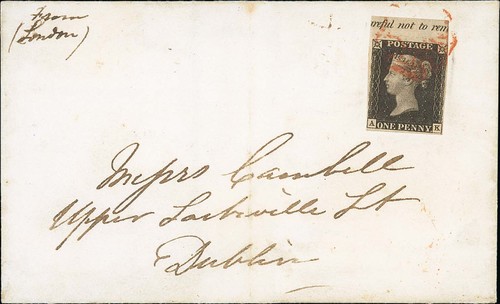 From
(London)
reful not to rem
POSTAGE
A K
ONE PENNY
Messrs Cambell
Upper Sackville St
Dublin